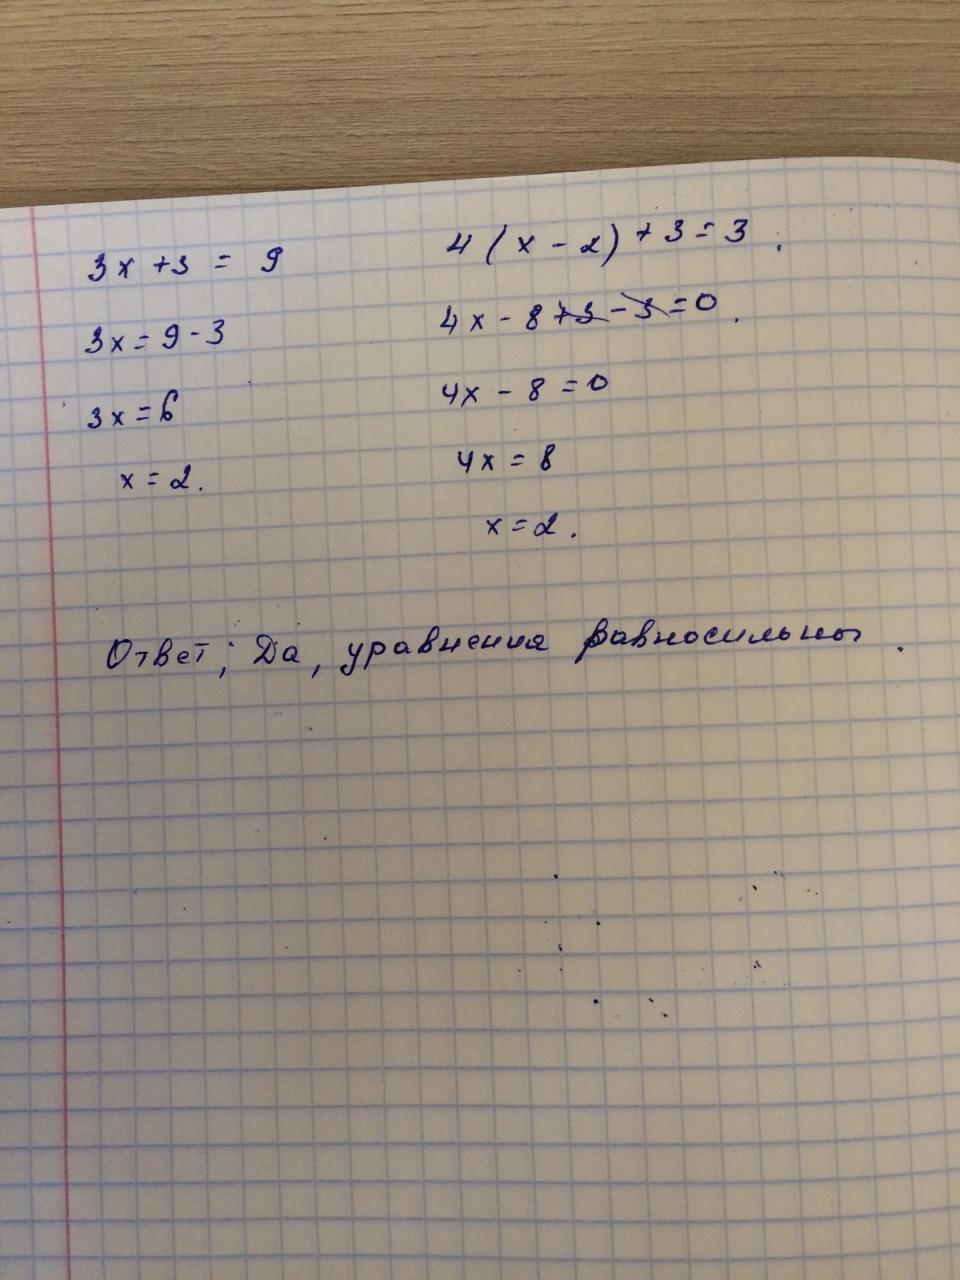 3x + 3 = 9
3x = 9 - 3
3x = 6
x = 2.
4(x - 2) + 3 = 3.
4x - 8 + 3 - 3 = 0.
4x - 8 = 0
4x = 8
x = 2.
Ответ; Да, уравнения равносильны.